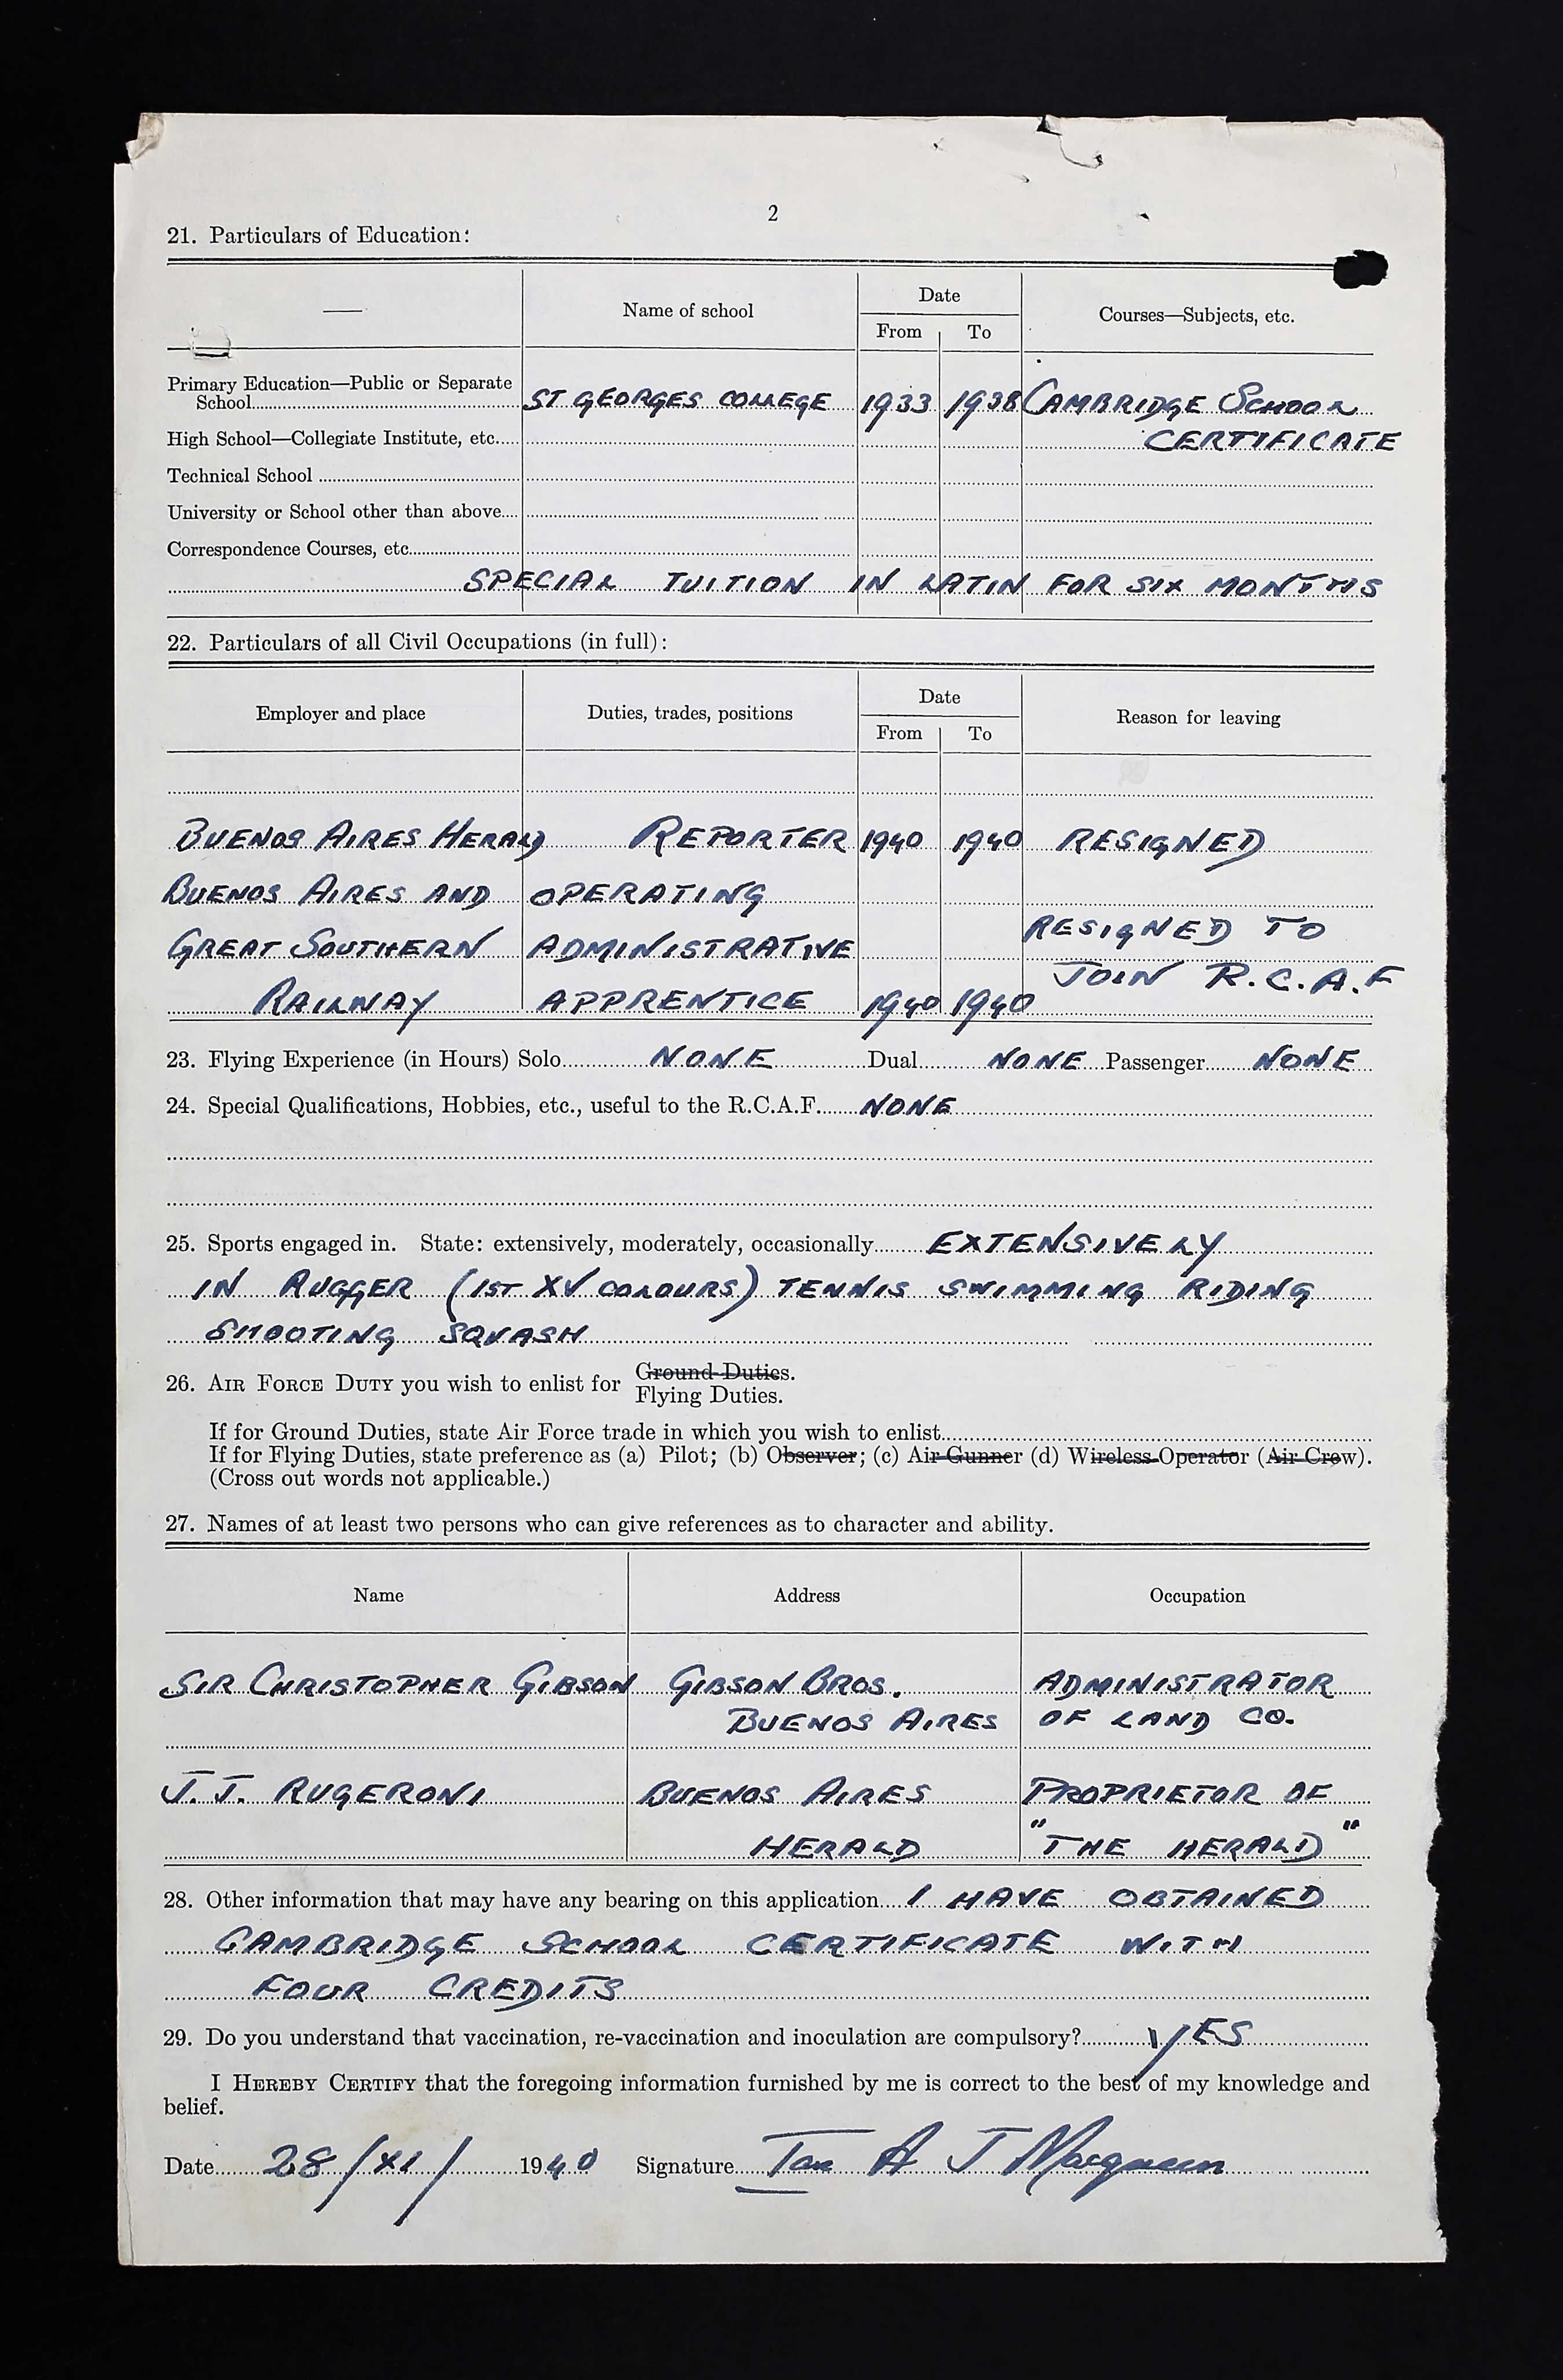 2
21. Particulars of Education:
— Name of school Date Courses—Subjects, etc.
From To
Primary Education—Public or Separate
School ST GEORGES COLLEGE 1933 1938 CAMBRIDGE SCHOOL
High School—Collegiate Institute, etc. CERTIFICATE
Technical School
University or School other than above
Correspondence Courses, etc.
SPECIAL TUITION IN LATIN FOR SIX MONTHS
22. Particulars of all Civil Occupations (in full):
Employer and place Duties, trades, positions Date Reason for leaving
From To
BUENOS AIRES HERALD REPORTER 1940 1940 RESIGNED
BUENOS AIRES AND OPERATING
GREAT SOUTHERN ADMINISTRATIVE RESIGNED TO
RAILWAY APPRENTICE 1940 1940 JOIN R.C.A.F
23. Flying Experience (in Hours) Solo NONE Dual NONE Passenger NONE
24. Special Qualifications, Hobbies, etc., useful to the R.C.A.F. NONE
25. Sports engaged in. State: extensively, moderately, occasionally EXTENSIVELY
IN RUGGER (1ST XV COLOURS) TENNIS SWIMMING RIDING
SHOOTING SQUASH
26. AIR FORCE DUTY you wish to enlist for Ground Duties.
Flying Duties.
If for Ground Duties, state Air Force trade in which you wish to enlist
If for Flying Duties, state preference as (a) Pilot; (b) Observer; (c) Air Gunner (d) Wireless Operator (Air Crew).
(Cross out words not applicable.)
27. Names of at least two persons who can give references as to character and ability.
Name Address Occupation
SIR CHRISTOPHER GIBSON GIBSON BROS. ADMINISTRATOR
BUENOS AIRES OF LAND CO.
J. J. RUGERONI BUENOS AIRES PROPRIETOR OF
HERALD "THE HERALD"
28. Other information that may have any bearing on this application I HAVE OBTAINED
CAMBRIDGE SCHOOL CERTIFICATE WITH
FOUR CREDITS
29. Do you understand that vaccination, re-vaccination and inoculation are compulsory? YES
I HEREBY CERTIFY that the foregoing information furnished by me is correct to the best of my knowledge and
belief.
Date 28/XI/ 1940 Signature Ian A J Macqueen